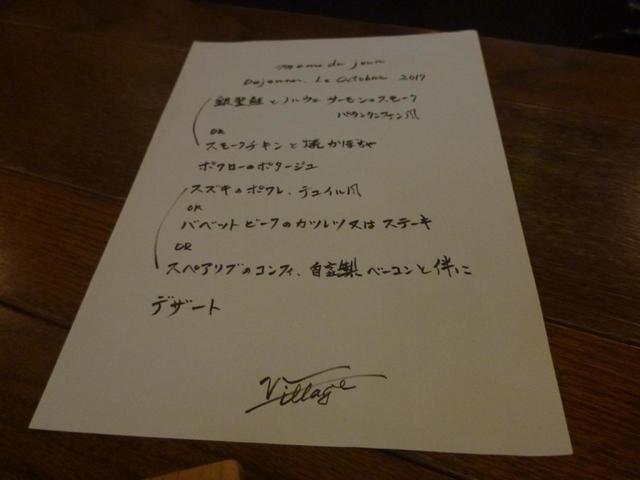 menu du jour
Dejeuner. Le Octobre 2017
銀聖鮭とノルウェーサーモンのスモーク
風
OR
スモークチキンと焼かぼちゃ
ポワローのポタージュ
スズキのポワレ、デュイル風
OR
バベットビーフのカツレツ又はステーキ
OR
スペアリブのコンフィ、自家製ベーコンと伴に
デザート
Village